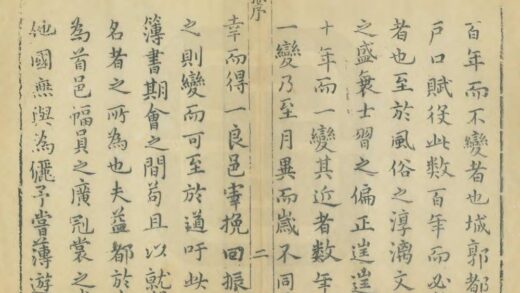 百年而不變者也城郭都
戶口賦役此數百年而必
者也至於風俗之淳漓文
之盛衰士習之偏正
十年而一變其近者數年
一變乃至月異而歲不同
序
二
幸而得一良邑宰挽回振
之則變而可至於道吁此
簿書期會之間苟且以就
名者之所為也夫益都於
為首邑幅員之廣冠裳之
他國無與為儷予嘗薄遊